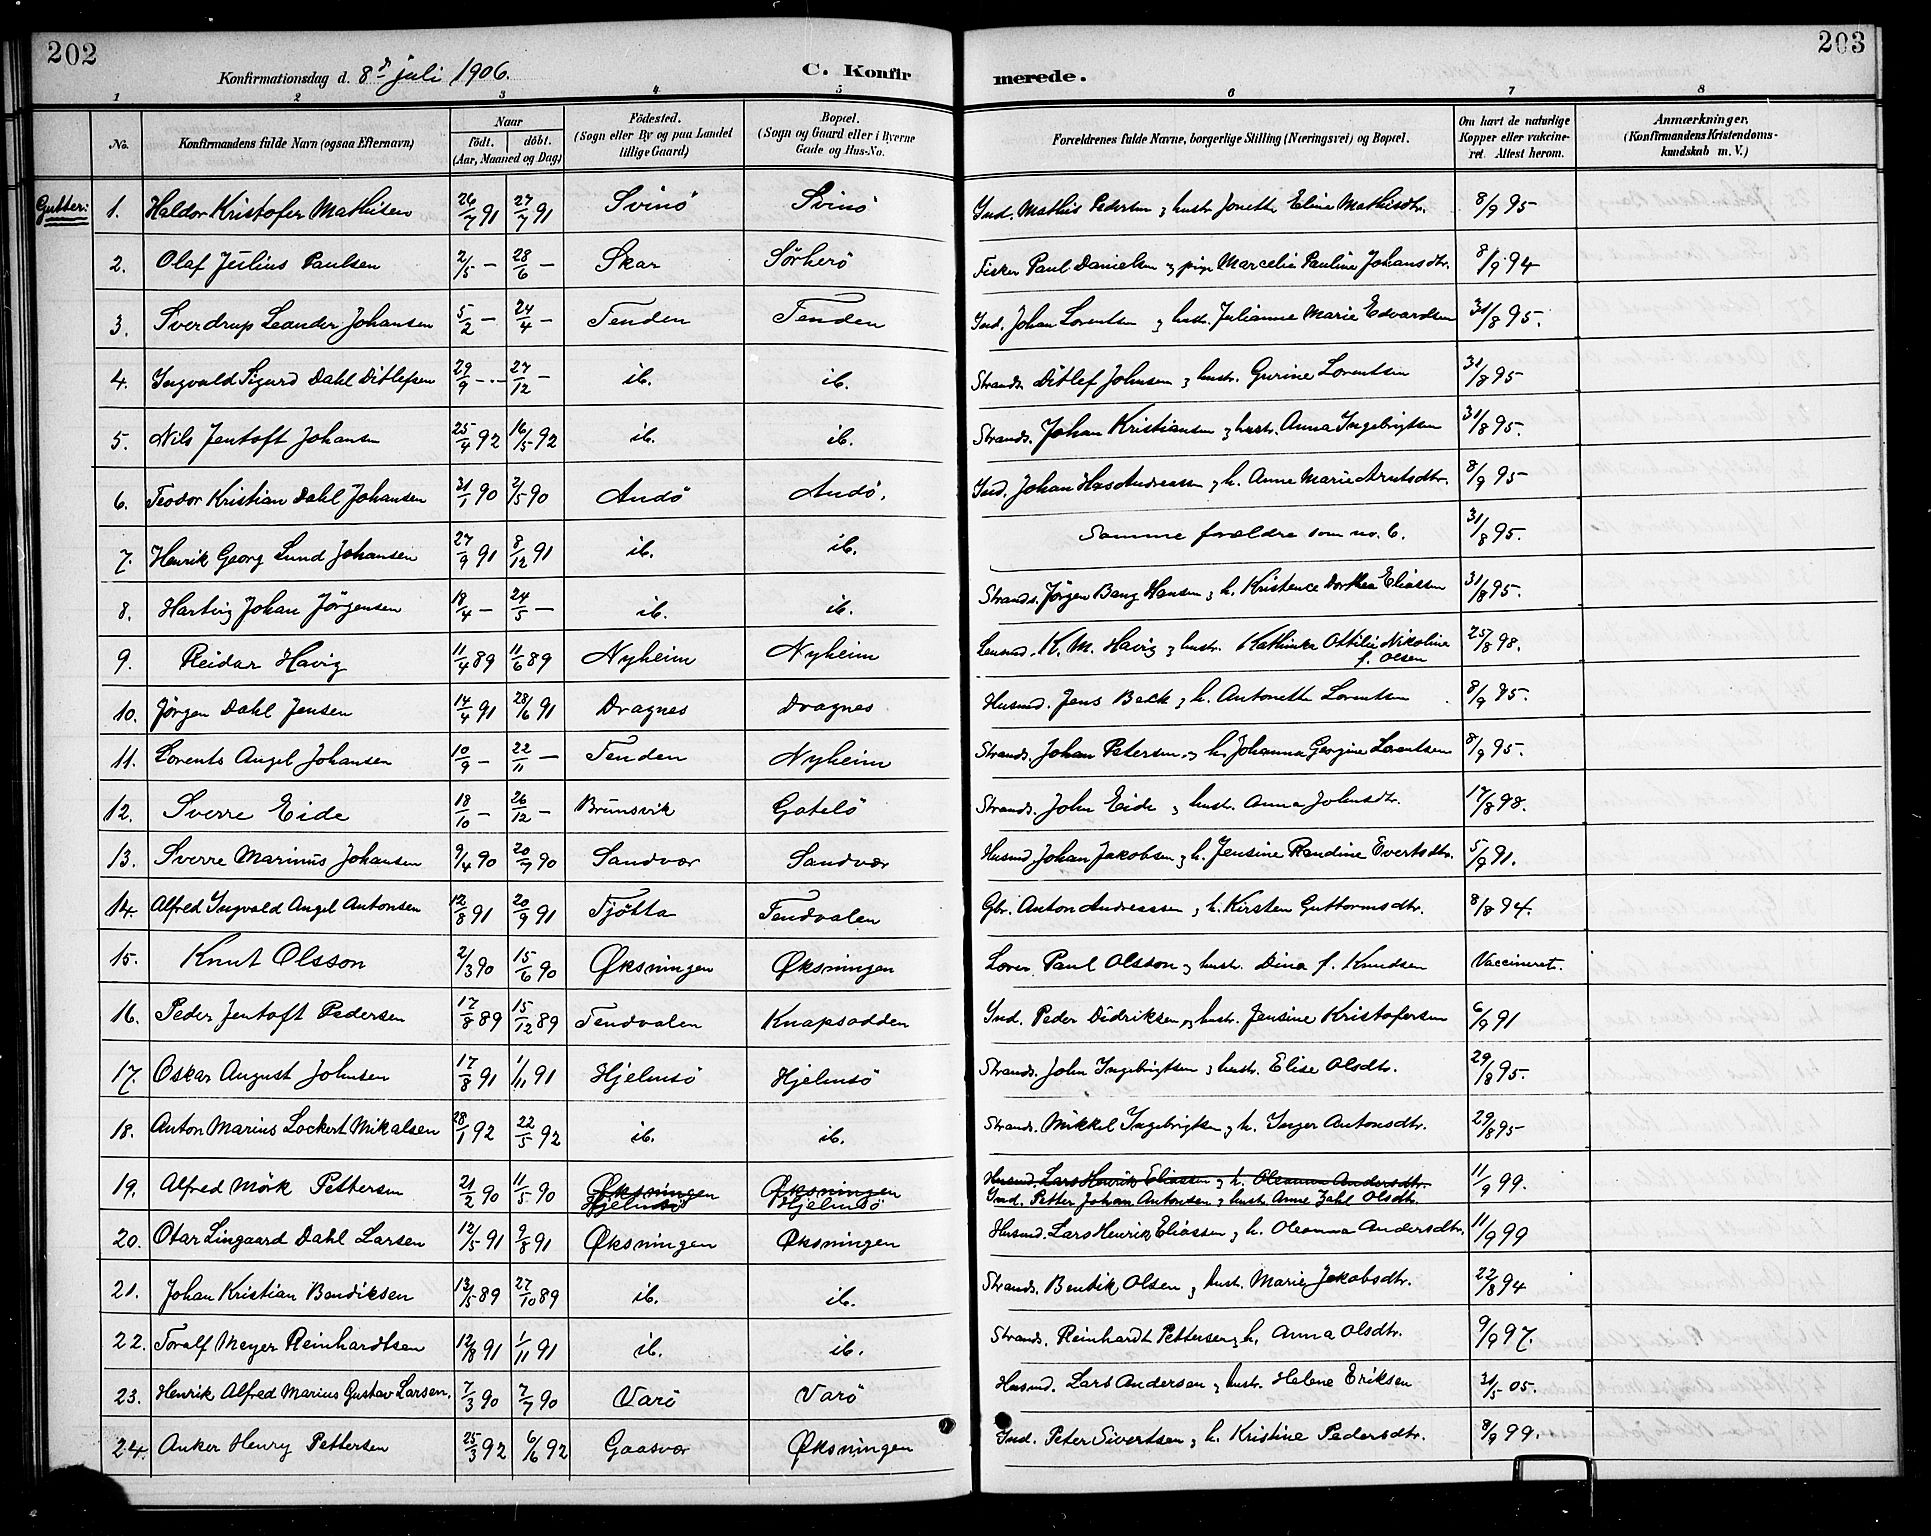 202
203
Konfirmationsdag d. 8de juli 1906.
C. Konfirmerede.
1 2 3 4 5 6 7 8
No.
Konfirmandens fulde Navn (ogsaa Efternavn)
Naar
födt. döbt.
(Aar, Maaned og Dag)
Födested.
(Sogn eller By og paa Landet
tillige Gaard)
Bopæl.
(Sogn og Gaard eller i Byerne
Gade og Hus-No.
Forældrenes fulde Navne, borgerlige Stilling (Næringsvei) og Bopæl.
Om havt de naturlige
Kopper eller vaccine-
ret. Attest herom.
Anmærkninger.
(Konfirmandens Kristendoms-
kundskab m. V.)
Gutter:
1. Haldor Kristofer Mathisen 26/7 91 27/7 91 Svinö Svinö Ind. Mathis Pedersen & hustr. Jonette Eline Mathisdtr. 8/9 95
2. Olaf Julius Paulsen 2/5 — 28/6 — Skar Sörherö Fisker Paul Danielsen & pige Marcelie Pauline Johansdtr. 8/9 94
3. Sverdrup Leander Johansen 5/2 — 24/4 — Tenden Tenden Ind. Johan Lorentsen & hustr. Julianne Marie Edvardsen 31/8 95.
4. Ingvald Sigurd Dahl Ditlefsen 29/9 — 27/12 — ib. ib. Strands. Ditlef Johnsen & hustr. Gurine Lorentsen 31/8 95
5. Nils Jentoft Johansen 25/4 92 16/5 92 ib. ib. Strands. Johan Kristiansen & hustr. Anna Ingebrigtsen 31/8 95.
6. Teodor Kristian Dahl Johansen 31/1 90 2/5 90 Andö Andö. Ind. Johan Has Andreassen & h. Anne Marie Arntsdtr. 8/9 95
7. Henrik Georg Lund Johansen 27/9 91 8/12 91 ib. ib. Samme forældre som no. 6. 31/8 95.
8. Hartvig Johan Jörgensen 18/4 — 24/5 — ib. ib. Strands. Jörgen Bang Hansen & h. Kristence Dorthea Eliassen 31/8 95.
9. Reidar Havig 11/4 89 11/6 89 Nyheim Nyheim Lensmd. K. M. Havig & hustr. Kathinka Ottilie Nikoline f. Olsen 25/8 98.
10. Jörgen Dahl Jensen 14/4 91 28/6 91 Dragnes Dragnes Husmd. Jens Beck & h. Antonette Lorentsen 8/9 95
11. Lorents Angel Johansen 10/9 — 22/11 — Tenden Nyheim Strands. Johan Petersen & h. Johanna Georgine Lorentsen 8/9 95.
12. Sverre Eide 18/10 — 26/12 — Brunsvik Gatelö Strands. John Eide & hustr. Anna Johnsdtr. 17/8 98.
13. Sverre Marinus Johansen 9/4 90 20/7 90 Sandvær Sandvær Husmd. Johan Jakobsen & h. Jensine Randine Evertsdtr. 5/9 91.
14. Alfred Ingvald Angel Antonsen 12/8 91 20/9 91 Tjötta Tendvalen Gbr. Anton Andreassen & h. Kirsten Guttormsdtr. 8/8 94.
15. Knut Olsson 2/3 90 15/6 90 Øksningen Øksningen Lærer Paul Olsson & hustr. Dina f. Knudsen Vaccineret.
16. Peder Jentoft Pedersen 17/8 89 15/12 89 Tendvalen Knapsodden Ind. Peder Didriksen & hustr. Jensine Kristofersen 6/9 91
17. Oskar August Johnsen 17/8 91 1/11 91 Hjelmsö Hjelmsö Strands. John Ingebrigtsen & hustr. Elise Olsdtr. 29/8 95.
18. Anton Marius Lockert Mikalsen 28/1 92 22/5 92 ib. ib. Strands. Mikkel Ingebrigtsen & h. Inger Antonsdtr. 29/8 95
19. Alfred Mörk Pettersen 21/2 90 11/5 90 Øksningen Øksningen Husmd. Lars Henrik Eliassen & h. Oleanna Andersdtr. 11/9 99.
Hjelmsö Hjelmsö Ind. Petter Johan Antonsen & hustr. Anne Zahl Olsdtr.
20. Otar Lingaard Dahl Larsen 12/5 91 9/8 91 Øksningen Øksningen Husmd. Lars Henrik Eliassen & h. Oleanna Andersdtr. 11/9 99
21. Johan Kristian Bendiksen 13/5 89 27/10 89 ib. ib. Strands. Bendik Olsen & hustr. Marie Jakobsdtr. 22/8 94
22. Toralf Meyer Reinhardtsen 12/8 91 1/11 91 ib. ib. Strands. Reinhardt Pettersen & h. Anna Olsdtr. 9/9 97.
23. Henrik Alfred Marius Gustav Larsen. 7/3 90 7/7 90 Varö Varö Husmd. Lars Andersen & hustr. Helene Eriksen 31/5 05.
24. Anker Henry Pettersen 25/3 92 6/6 92 Gaasvær Øksningen Ind. Peter Sivertsen & h. Kristine Pedersdtr. 8/9 99.